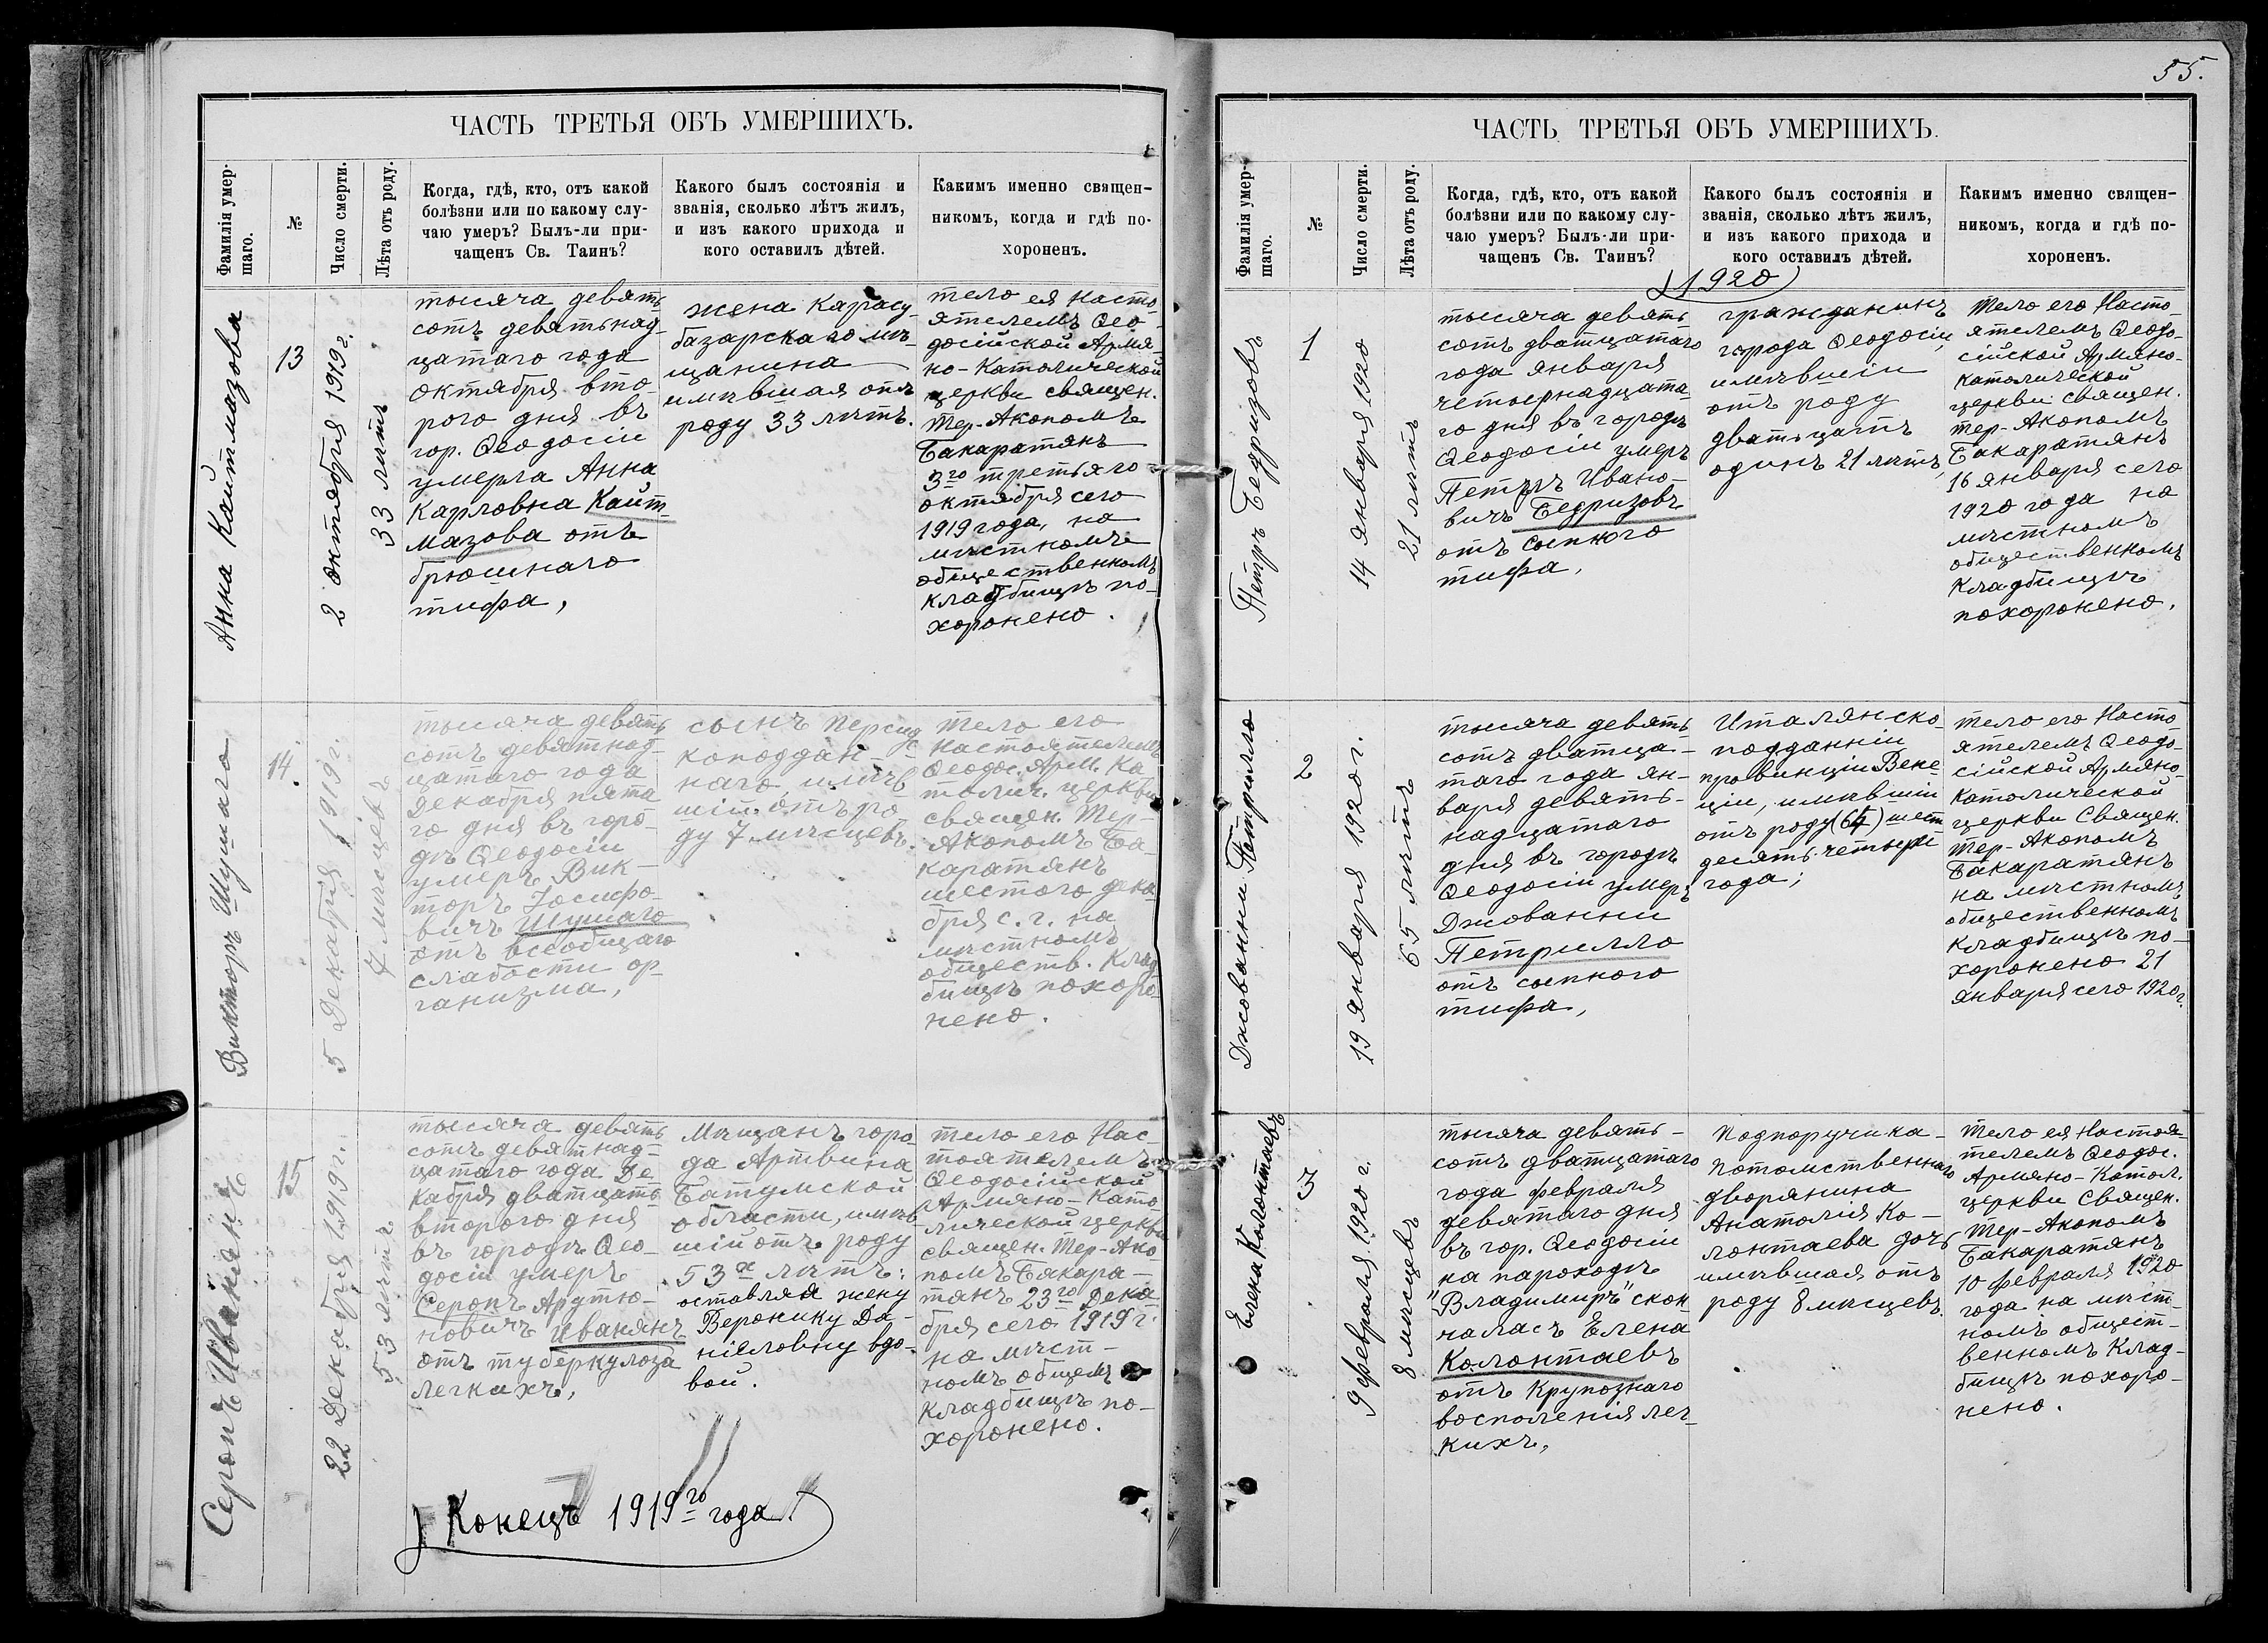 ЧАСТЬ ТРЕТЬЯ ОБЪ УМЕРШИХЪ.
Фамилія умер-
шаго.
№
Число смерти.
Лѣта отъ роду.
Когда, гдѣ, кто, отъ какой
болѣзни или по какому слу-
чаю умеръ? Былъ-ли при-
чащенъ Св. Таинъ?
Какого былъ состоянія и
званія, сколько лѣтъ жилъ,
и изъ какого прихода и
кого оставилъ дѣтей.
Какимъ именно священ-
никомъ, когда и гдѣ по-
хороненъ.
Анна Кайтмазова
13
2 октября 1919 г.
33 лѣтъ
тысяча девять
сотъ девятьнад-
цатаго года
октября вто
рого дня въ
гор. Ѳеодосіи
умерла Анна
Карловна Кайт
мазова отъ
брюшнаго
тифа,
жена Карасу-
базарскаго мѣ-
щанина
имѣвшая отъ
роду 33 лѣтъ.
тело ея Насто-
ятелемъ Ѳео-
досійской Армя-
но-Католической
церкви священ.
Тер-Акопомъ
Бакаратянъ
3го третьяго
октября сего
1919 года, на
мѣстномъ
общественномъ
кладбищѣ по-
хоронено.
Викторъ Шушаго
14.
5 Декабря 1919 г.
7 мѣсяцевъ
тысяча девять
сотъ девятнад-
цатаго года
Декабря пята
го дня въ горо-
дѣ Ѳеодосіи
умеръ Вик-
торъ Іосифо-
вичъ Шушаго
отъ всеобщаго
слабости ор-
ганизма,
сынъ персидс
коподдан-
наго, имѣв
шій отъ ро
ду 7 мѣсяцевъ.
Тело его
настоятелемъ
Ѳеодос. Арм. Ка
толич. церкви
священ. Тер-
Акопомъ Ба-
каратянъ
шестого дека
бря с. г. на
мѣстномъ
обществ. клад
бищѣ похоро-
нено.
Серопъ Иванянъ
15
22 Декабря 1919 г.
53 лѣтъ
тысяча девять
сотъ девятнад-
цатаго года Де
кабря дватцать
второго дня
въ городѣ Ѳео-
досіи умеръ
Серопъ Арутю-
новичъ Иванянъ
отъ туберкулоза
легкихъ,
Мѣщанъ горо
да Артвина
Батумской
области, имѣв
шій отъ роду
53хъ лѣтъ:
оставляя жену
Веронику Да-
ніеловну вдо-
вой.
тело его Нас-
тоятелемъ
Ѳеодосійской
Армяно-Като
лической церкви
священ. Тер-Ако
помъ Бакара-
тянъ 23го Дека
бря сего 1919 г.
на мѣст-
номъ общемъ
кладбищѣ по-
хоронено.
Конецъ 1919го года
55.
ЧАСТЬ ТРЕТЬЯ ОБЪ УМЕРШИХЪ.
Фамилія умер-
шаго.
№
Число смерти.
Лѣта отъ роду.
Когда, гдѣ, кто, отъ какой
болѣзни или по какому слу-
чаю умеръ? Былъ-ли при-
чащенъ Св. Таинъ?
Какого былъ состоянія и
званія, сколько лѣтъ жилъ,
и изъ какого прихода и
кого оставилъ дѣтей.
Какимъ именно священ-
никомъ, когда и гдѣ по-
хороненъ.
1920
Петръ Бедризовъ
1
14 января 1920
21 лѣтъ
тысяча девять
сотъ дватцатаго
года января
четырнадцата
го дня въ городѣ
Ѳеодосіи умеръ
Петръ Ивано-
вичъ Бедризовъ
отъ сыпного
тифа,
гражданинъ
города Ѳеодосіи,
имѣвшіи
отъ роду
двать цать
одинъ 21 лѣтъ,
Тело его Насто-
ятелемъ Ѳеодо-
сійской Армяно-
католической
церкви священ.
Тер-Акопомъ
Бакаратянъ
16 января сего
1920 года на
мѣстномъ
общественномъ
кладбищѣ
похоронено.
Джованни Петрилло
2
19 января 1920 г.
65 лѣтъ
тысяча девять
сотъ дватца-
таго года ян-
варя девять-
надцатаго
дня въ городѣ
Ѳеодосіи умеръ
Джованни
Петрилло
отъ сыпного
тифа,
Италянско-
подданніи
провинціи Вене-
ціи, имѣвшіи
отъ роду (64) шест
десять четыре
года;
тело его Насто
ятелемъ Ѳеодо-
сійской Армяно-
Католической
церкви Священ.
Тер-Акопомъ
Бакаратянъ
на мѣстномъ
общественномъ
кладбищѣ по-
хоронено 21
января сего 1920 г.
Елена Колонтаевъ
3
9 февраля 1920 г.
8 мѣсяцев
тысяча девять-
сотъ дватцатаго
года февраля
девятаго дня
въ гор. Ѳеодосіи
на пароходѣ
"Владимиръ" скон
чалась Елена
Колонтаевъ
отъ Крупознаго
восполенія лег-
кихъ,
Подпоручика-
потомственнаго
дворянина
Анатолия Ко-
лонтаева дочь
имѣвшая отъ
роду 8 мѣсяцевъ.
Тело ея Настоя-
телемъ Ѳеодос.
Армяно-Катол.
церкви Священ.
Тер-Акопомъ
Бакаратянъ
10 февраля 1920
года на мѣст-
номъ общест-
венномъ Клад-
бищѣ похоро-
нено.